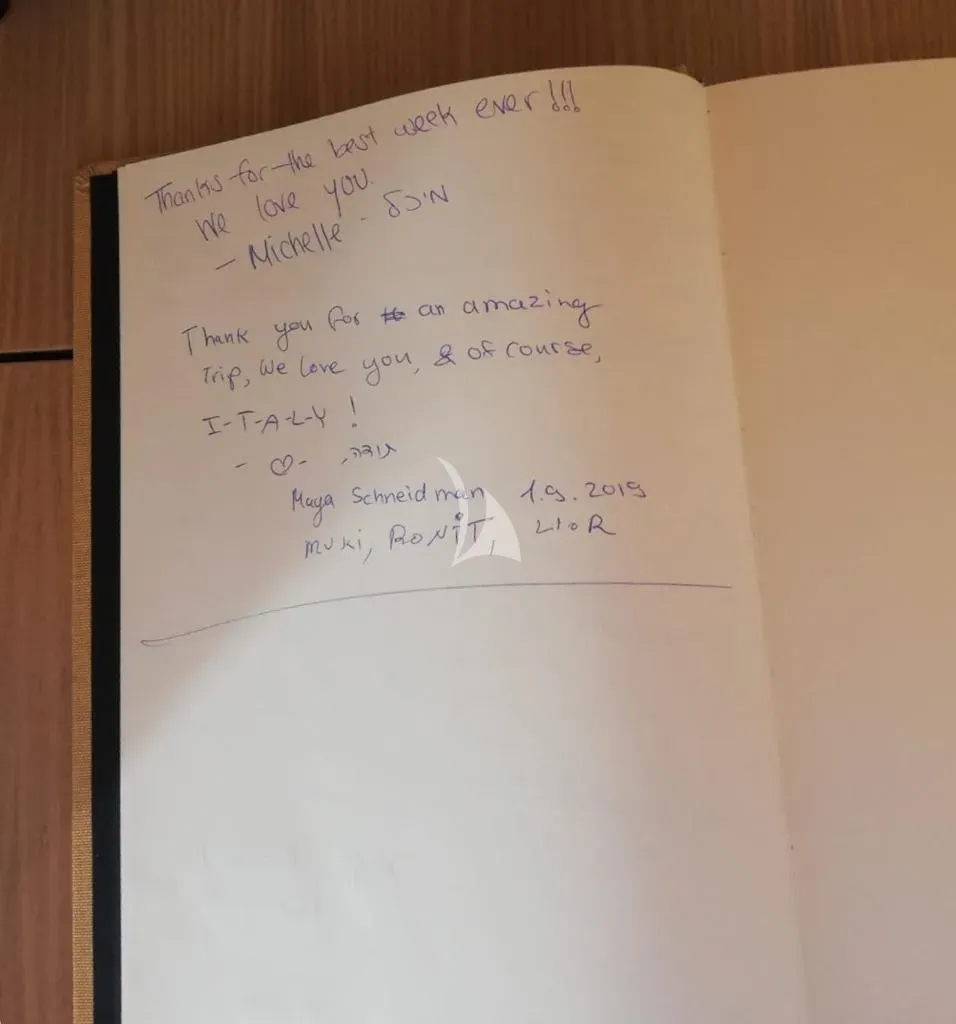 Thanks for the best week ever!!!
We love you.
- Michelle - מיכל
Thank you for an amazing
Trip, We love you, & of course,
I-T-A-L-Y !
- ♡ - תודה,
Maya Schneidman 1.9.2019
Muki, RONiT, LIOR